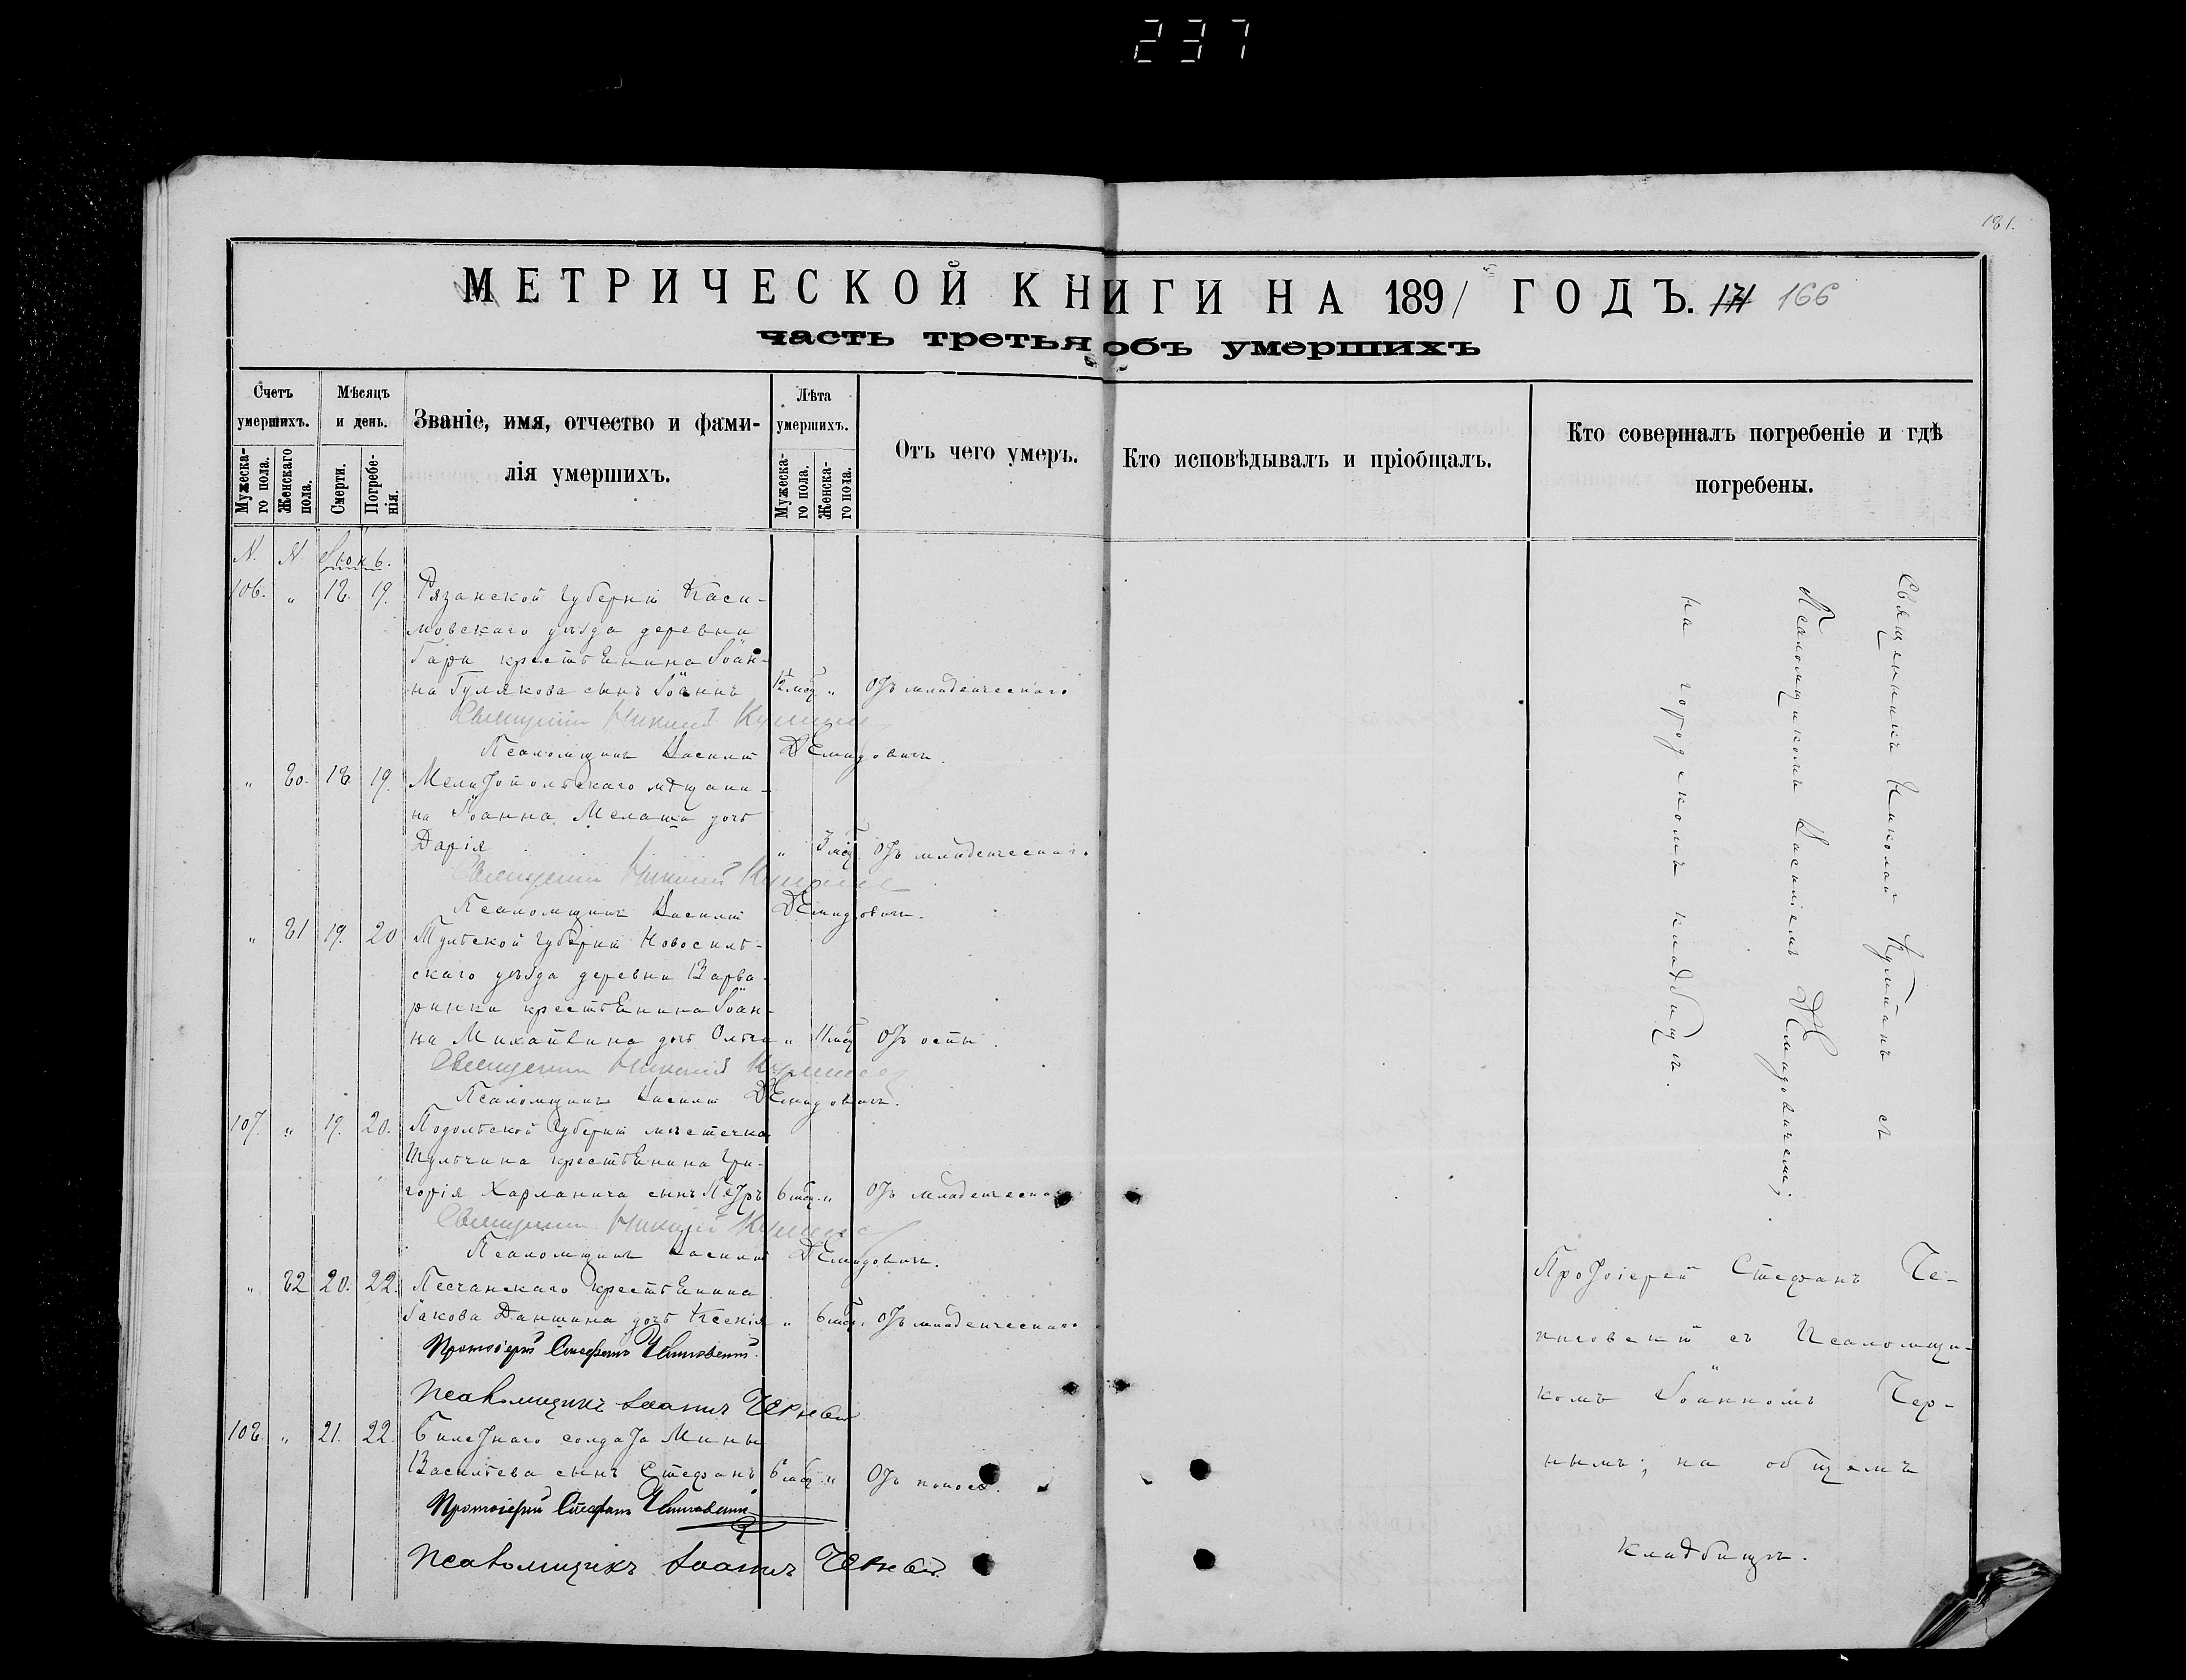 237
181.
МЕТРИЧЕСКОЙ КНИГИ НА 1891 ГОДЪ. 171 166
часть третья объ умершихъ
Счетъ умершихъ.
Мужеска-го пола.
Женскаго пола.
Мѣсяцъ и день.
Смерти.
Погребе-нія.
Званіе, имя, отчество и фами-
лія умершихъ.
Лѣта умершихъ.
Мужеска-го пола.
Женска-го пола.
Отъ чего умеръ.
Кто исповѣдывалъ и пріобщалъ.
Кто совершалъ погребеніе и гдѣ
погребены.
N. N
106. " 18. 19. Рязанской губерніи Каси-
мовскаго уѣзда деревни
Гари крестьянина Іоан-
на Гулякова сынъ Іоаннъ 12 мѣс " Отъ младенческаго
Священникъ Николай
Псаломщикъ Василій Демидовичъ.
" 80. 18 19. Мелитопольскаго мѣщани-
на Іоанна Мелаша дочь
Дарія " 3 мѣс. Отъ младенческаго.
Священникъ Николай
Псаломщикъ Василій Демидовичъ.
" 81 19. 20 Тульской губерніи Новосиль-
скаго уѣзда деревни Варва-
ринки крестьянина Іоан-
на Михайкина дочь Ольга " 11 мѣс Отъ оспы.
Священникъ Николай
Псаломщикъ Василій Демидовичъ.
107. " 19. 20. Подольской губерніи мѣстечка
Тульчина крестьянина Гри-
горія Харланича сынъ Петръ 6 мѣс. " Отъ младенческаго
Священникъ Николай
Псаломщикъ Василій Демидовичъ.
" 82 20. 22. Песчанскаго крестьянина
Іакова Даншина дочь Ксенія " 6 мѣс. Отъ младенческаго
Протоіерей Стефанъ
Псаломщикъ Іоаннъ Черный
108. " 21. 22. Билетнаго солдата Мины
Васильева сынъ Стефанъ 6 мѣс " Отъ поноса.
Протоіерей Стефанъ
Псаломщикъ Іоаннъ Черный.
Священникъ Николай съ
Псаломщикомъ Василіемъ Демидовичемъ;
на городскомъ кладбищѣ.
Протоіерей Стефанъ Че-
съ Псаломщи-
комъ Іоанномъ Чер-
нымъ; на общемъ
кладбищѣ.